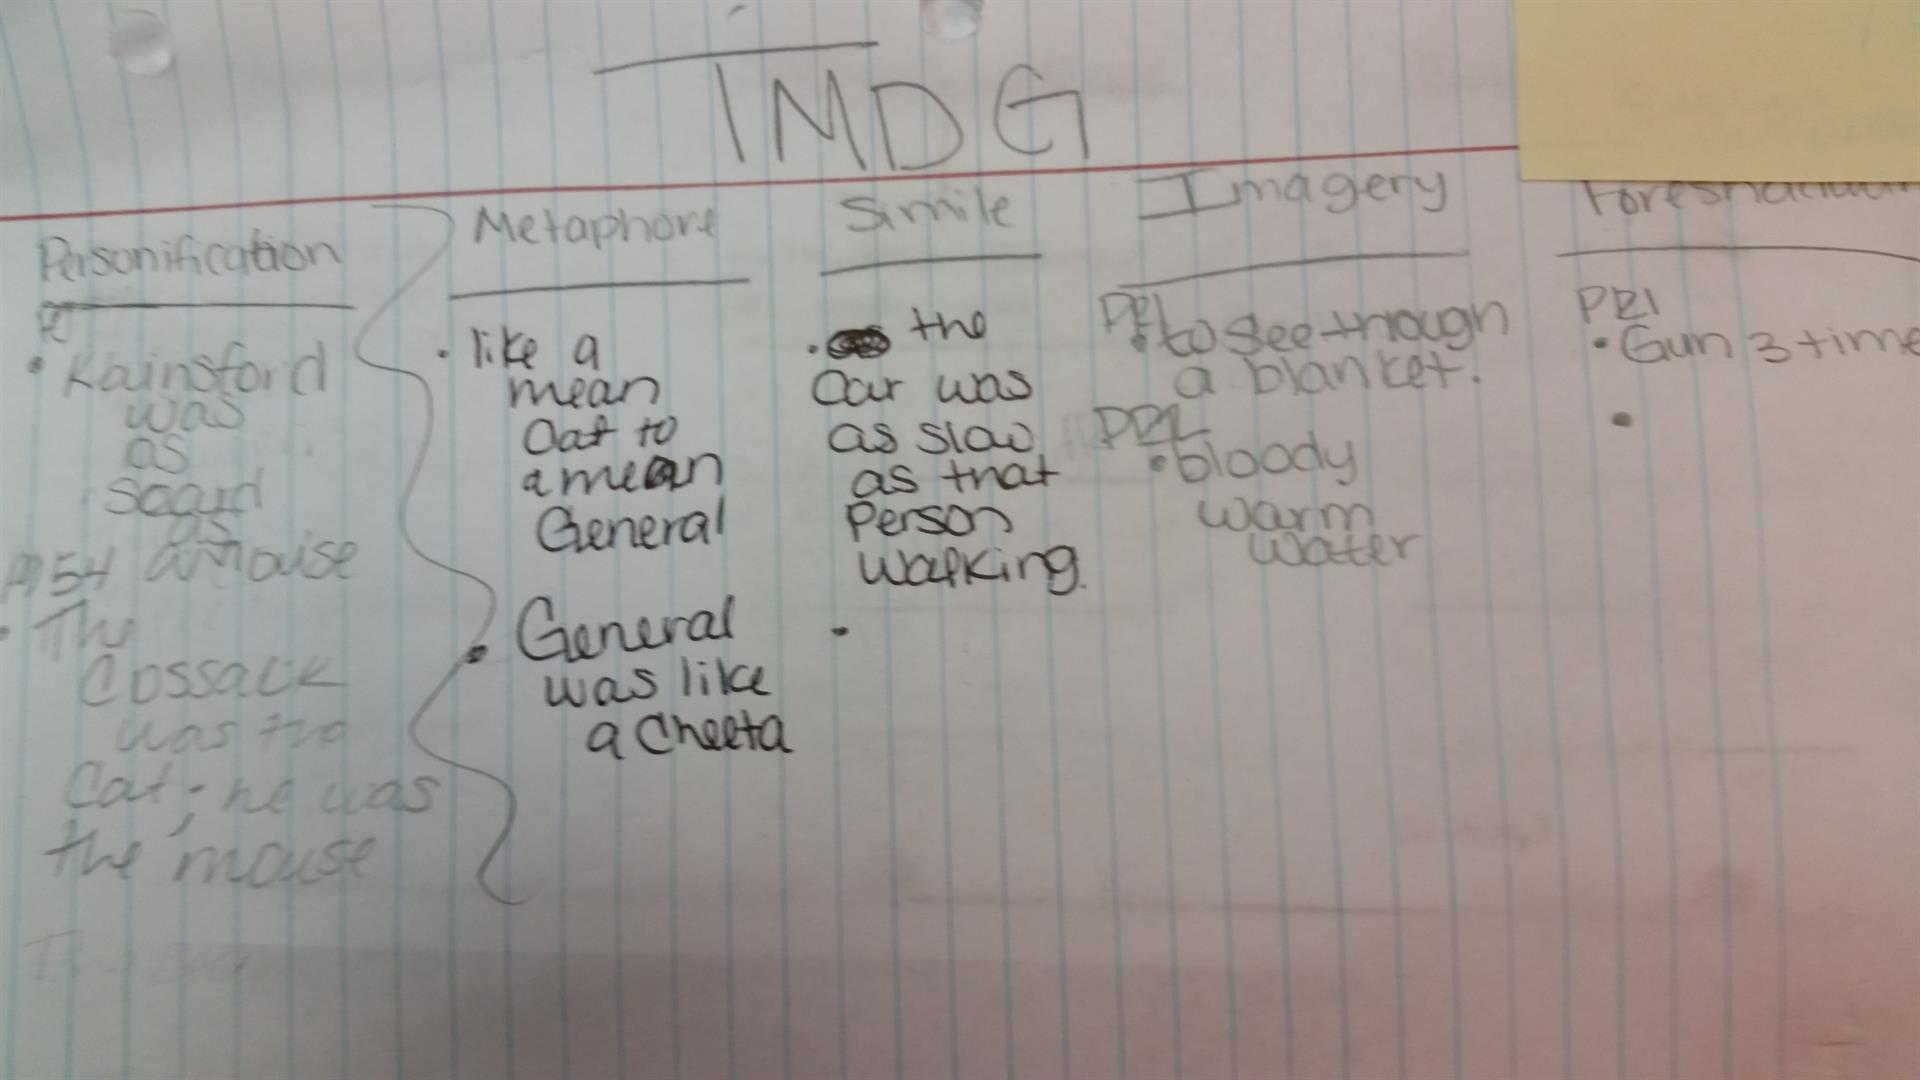 TMDG
Personification
• Rainsford
was
as
scard
as
P54 a mouse
• The
Cossack
was the
Cat; he was
the mouse
Metaphore
• like a
mean
Cat to
a mean
General
• General
was like
a Cheeta
Simile
• the
Car was
as slow
as that
Person
walking.
•
Imagery
PR1
• to see through
a blanket.
PR2
• bloody
warm
water
PR1
• Gun 3 time
•